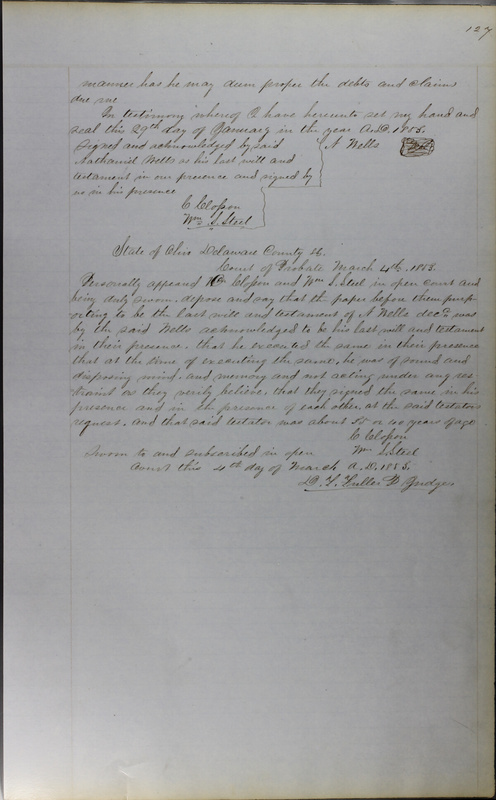 127
manner has he may deem proper the debts and claims
due me
In testimony whereof I have hereunto set my hand and
seal this 29th day of January in the year A.D. 1853.
Signed and acknowledged by said
A Wells
Nathaniel Wells as his last will and
testament in our presence and signed by
us in his presence
C Closson
Wm S. Steel
State of Ohio Delaware County SS.
Court of Probate March 4th. 1853.
Personally appeared C Closson and Wm S. Steel in open court and
being duly sworn. depose and say that the paper before them purp-
orting to be the last will and testament of N Wells decd was
by the said Wells acknowledged to be his last will and testament
in their presence. that he executed the same in their presence
that at the time of executing the same. he was of sound and
disposing mind. and memory and not acting under any res
traint as they verily believe. that they signed the same in his
presence and in the presence of each other, at the said testators
request. And that said testator was about or 40 years of age
C Closson
Sworn to and subscribed in open
Wm S. Steel
Court this 4th day of March A.D. 1853.
D. T. Fuller P Judge